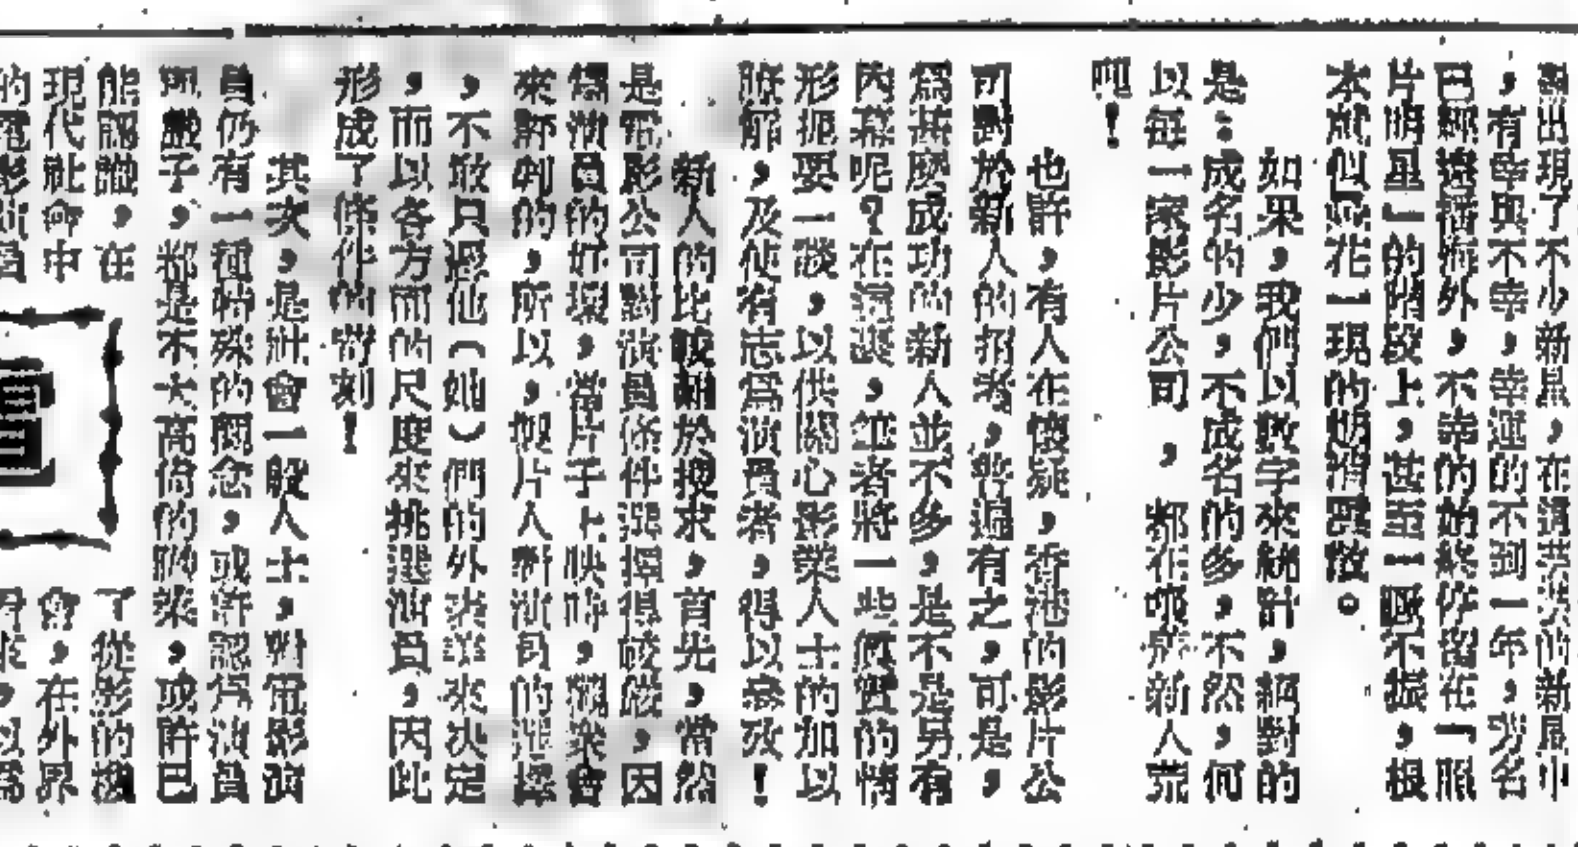 出現了不少新星,在這茫茫的新星中
,有幸與不幸,幸運的不到一年,芳名
已經遠播海外,不幸的始終停留在「照
片明星」的階段上,甚至一蹶不振,根
本就似曇花一現的期消跡散。
如果,我們以數字來統計,絕對的
是:成名的少,不成名的多,不然,何
以每一家影片公司,都在喚新人荒
呢!
也許,有人在懷疑,香港的影片公
司對於新人的招考,普遍有之,可是,
爲甚麼成功的新人並不多,是不是另有
內幕呢?在這裏,筆者將一些真實的情
形扼要一談,以供關心影業人士的加以
瞭解,及使有志爲演員者,得以參攷!
新人的比較難於搜求,首先,當然
是電影公司對演員條件選擇得較嚴,因
爲演員的好壞,當片子上映時,觀衆會
來評判的,所以,製片人對演員的選擇
,不敢只憑他(她)們的外表來決定
,而以各方面的尺度來挑選演員,因此
形成了條件的苛刻!
其次,是社會一般人士,對電影演
員仍有一種特殊的觀念,或許認爲演員
戲子,都是不大高尚的職業,或許已
能認識,在
現代社會中
的電影演員
了從影的
會,在外界